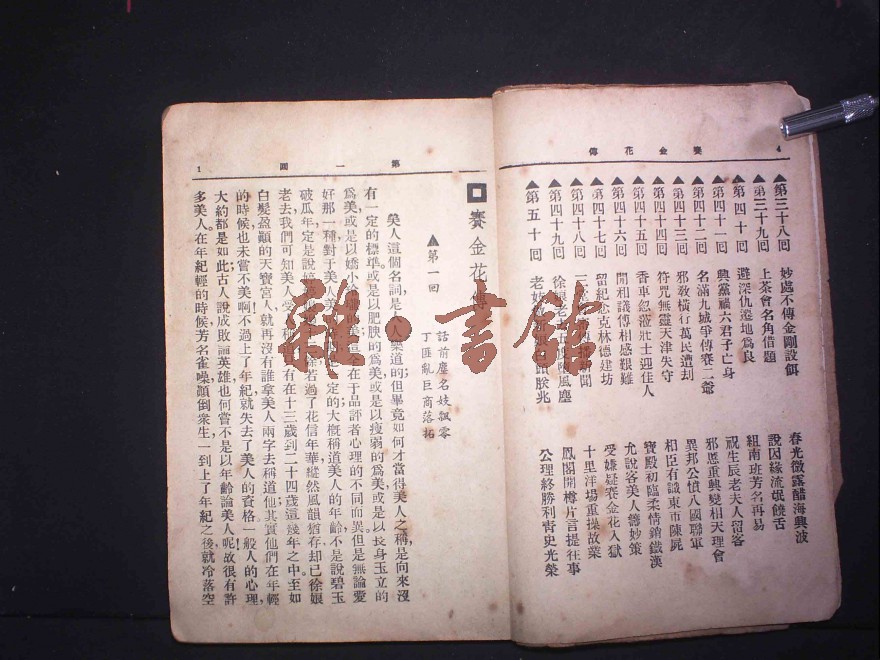 賽金花傳 4
▲第三十八回 妙處不傳金剛設餌 春光微露醋海興波
▲第三十九回 上茶會名角借題 說因緣流氓饒舌
▲第四十回 避深仇邊地為良 組南班芳名再易
▲第四十一回 興黨禍六君子亡身 祝生長老夫人留客
▲第四十二回 名滿九城爭傳賽二爺 邪慝重興變相天理會
▲第四十三回 邪教橫行萬民遭刦 異邦公憤八國聯軍
▲第四十四回 符咒無靈天津失守 相臣有識東市陳屍
▲第四十五回 香車 壯士迎佳人 寶殿初臨柔情銷鐵漢
▲第四十六回 開和議傅相感艱難 允說客美人籌妙策
▲第四十七回 留紀念克林德建坊 受嫌疑賽金花入獄
▲第四十八回 三 聞 十里洋場重操故業
▲第四十九回 徐娘老 風塵 鳳閣開樽片言提往事
▲第五十回 老妓 兆 公理終勝利靑史光榮
第一回 1
賽金花傳
▲第一回 話前塵名妓飄零
丁匪亂巨商落拓
美人這個名詞，是人人樂道的，但畢竟如何才當得美人之稱，是向來沒
有一定的標準。或是以肥胰的爲美，或是以瘦弱的爲美，或是以長身玉立的
爲美，或是以嬌小 美，這全在于品評者心理的不同而異。但是無論愛
好那一種，對于美人 定的大概，稱道美人的年齡，不是說碧玉
破瓜年，定是說 若過了花信年華，縱然風韻猶存，却已徐娘
老去，我們可知美人 有在十三歲到二十四歲這幾年之中。至如
白髮盈顚的天寶宮人，就再沒有誰拿美人兩字去稱道他，其實他們在年輕
的時候，也未嘗不美啊，不過上了年紀，就失去了美人的資格，一般人的心理，
大約都是如此；古人說成敗論英雄，也何嘗不是以年齡論美人呢。故很有許
多美人，在年紀輕的時候，芳名雀噪，顚倒衆生，一到上了年紀之後，就冷落空
雜·書館